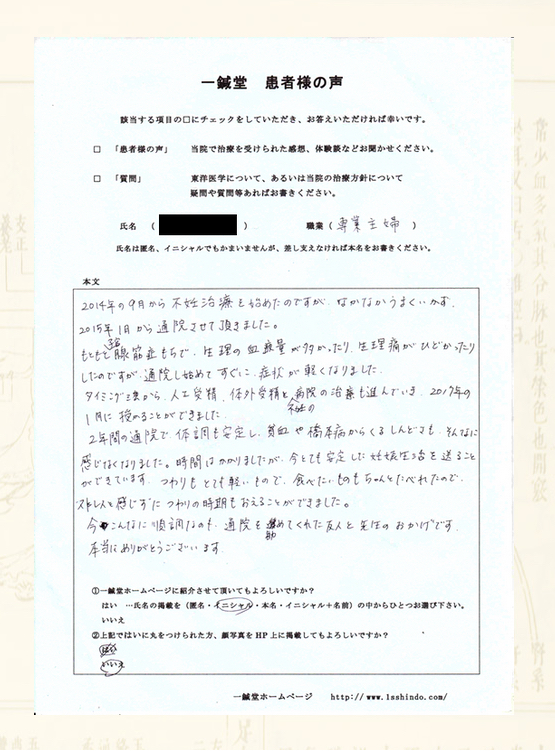 一鍼堂 患者様の声
該当する項目の□にチェックをしていただき、お答えいただければ幸いです。
□ 「患者様の声」 当院で治療を受けられた感想、体験談などお聞かせください。
□ 「質問」 東洋医学について、あるいは当院の治療方針について
疑問や質問等あればお書きください。
氏名 ( ) 職業 ( 専業主婦 )
氏名は匿名、イニシャルでもかまいませんが、差し支えなければ本名をお書きください。
本文
2014年の9月から不妊治療を始めたのですが、なかなかうまくいかず、
2015年1月から通院させて頂きました。
もともと腺筋症もちで、生理の血の量が多かったり、生理痛がひどかったり
したのですが、通院し始めてすぐに、症状が軽くなりました。
タイミング法から、人工受精、体外受精と不妊の病院の治療も進んでいき、2017年の
1月に授かることができました。
2年間の通院で、体調も安定し、貧血や橋本病からくるしんどさも、そんなに
感じなくなりました。時間はかかりましたが、今とても安定した妊娠生活を送ること
ができています。つわりもとても軽いもので、食べたいものもちゃんとたべれたので、
しんどいと感じずにつわりの時期もおえることができました。
今こんなに順調なのも、通院を勧めてくれた友人と先生のおかげです。
本当にありがとうございます
①一鍼堂ホームページに紹介させて頂いてもよろしいですか？
はい …氏名の掲載を（匿名・イニシャル・本名・イニシャル＋名前）の中からひとつお選び下さい。
いいえ
②上記ではいに丸をつけられた方、顔写真をHP上に掲載してもよろしいですか？
はい
いいえ
一鍼堂ホームページ http://www.1sshindo.com/